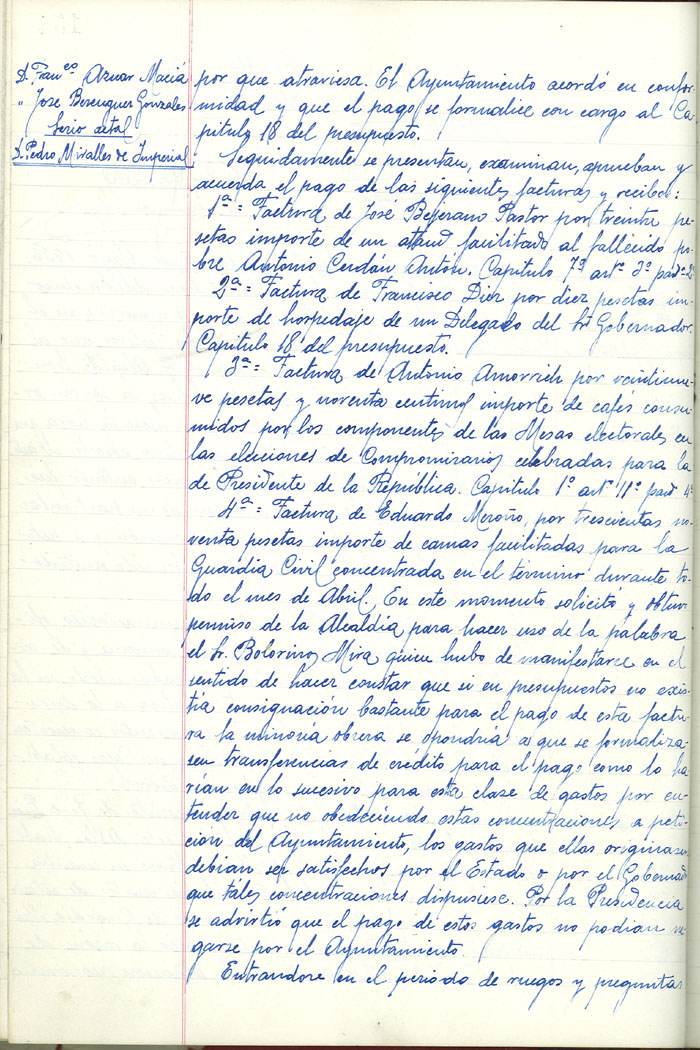 D. Franco Aznar Maciá
" Jose Berenguer Gonzales
Srio actal
D. Pedro Miralles de Imperial
por que atraviesa. El Ayuntamiento acordó en confor
midad y que el pago se formalice con cargo al Ca-
pitulo 18 del presupuesto.
Seguidamente se presentan, examinan, aprueban y
acuerda el pago de las siguientes facturas y recibos:
1ª = Factura de José Bejerano Pastor por treinta pe-
setas importe de un ataud facilitado al fallecido po-
bre Antonio Cerdán Antón. Capitulo 7º artº 3º
2ª = Factura de Francisco Diez por diez pesetas im-
porte de hospedaje de un Delegado del Sr. Gobernador.
Capitulo 18 del presupuesto.
3ª = Factura de Antonio Amorrich por veintinue-
ve pesetas y noventa centimos importe de cafés consu-
midos por los componentes de las Mesas electorales en
las elecciones de Compromisarios celebradas para la
de Presidente de la República. Capitulo 1º artº 11º
4ª = Factura de Eduardo Meroño, por trescientas no-
venta pesetas importe de camas facilitadas para la
Guardia Civil concentrada en el término durante to-
do el mes de Abril. En este momento solicitó y obtuvo
permiso de la Alcaldía para hacer uso de la palabra
el Sr. Bolorinos Mira quien hubo de manifestarse en el
sentido de hacer constar que si en presupuestos no exis-
tía consignación bastante para el pago de esta factu-
ra la minoría obrera se opondría a que se formaliza-
sen transferencias de crédito para el pago como lo ha
rían en lo sucesivo para esta clase de gastos por en-
tender que no obedeciendo estas concentraciones a peti-
ción del Ayuntamiento, los gastos que ellas originasen
debian ser satisfechos por el Estado o por el Gobernador
que tales concentraciones dispusiese. Por la Presidencia
se advirtió que el pago de estos gastos no podian ne
garse por el Ayuntamiento.
Entrandose en el periodo de ruegos y preguntas